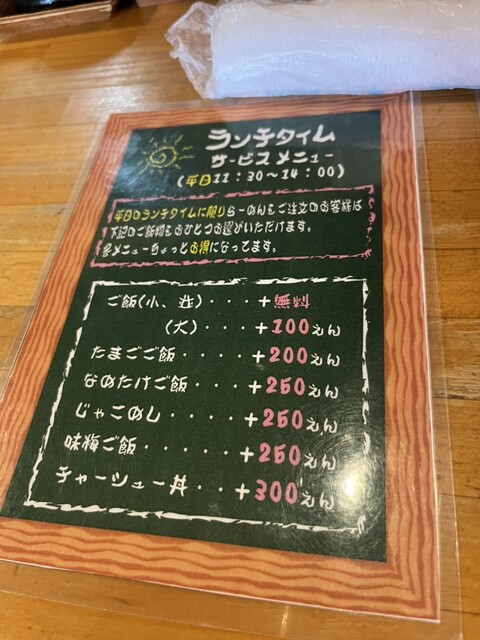 ランチタイム
サービスメニュー
(平日11:30〜14:00)
平日のランチタイムに限りらーめんをご注文のお客様は
下記のご飯物をおひとつお選びいただけます。
各メニューちょっとお得になってます。
ご飯(小、並)・・・+無料
(大)・・・+100えん
たまごご飯・・・・+200えん
なめたけご飯・・・+250えん
じゃこめし・・・・+250えん
味梅ご飯・・・・・+250えん
チャーシュー丼・・+300えん